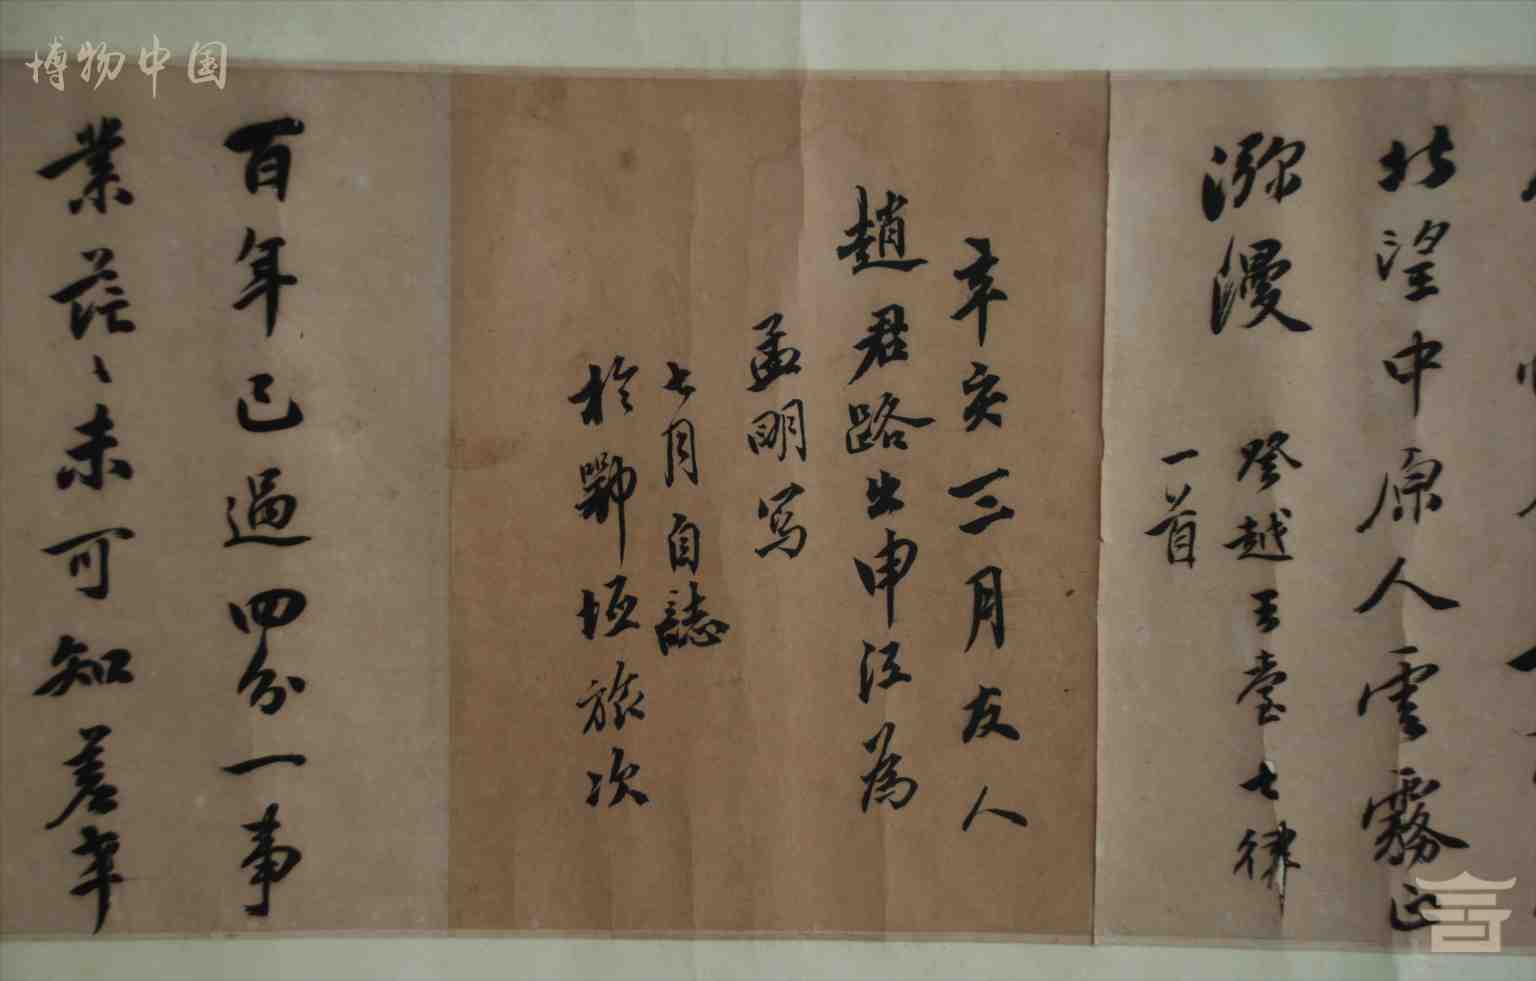 博物中国
北望中原人雲霧正
瀰漫
登越王臺七律
一首
辛亥三月友人
趙君路出申江為
孟明写
七月自誌
於鄂垣旅次
百年已過四分一事
業茫〻未可知差幸